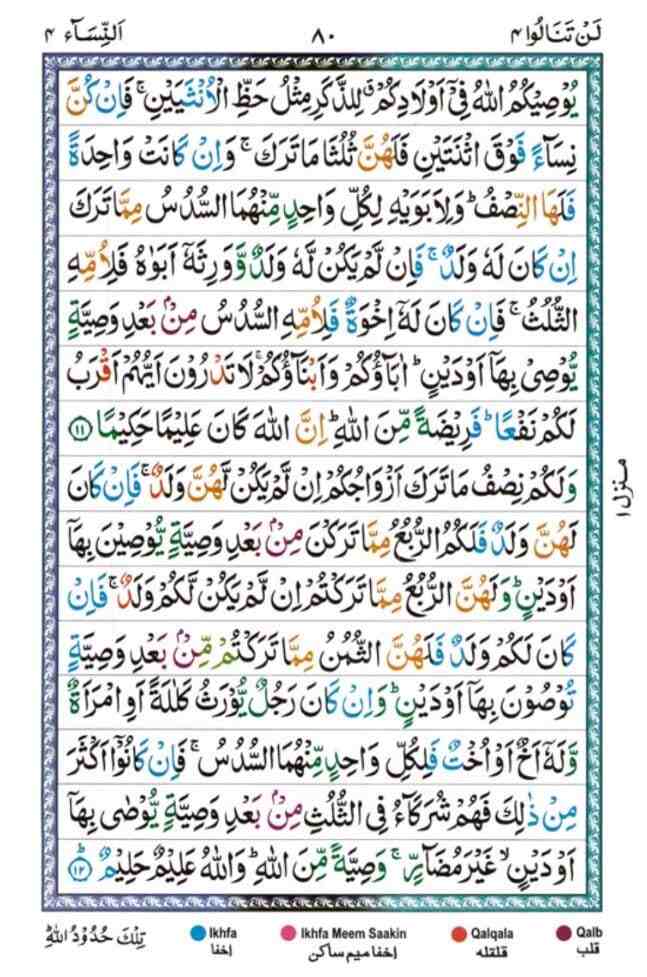 لَنْ تَنَالُوا ٤
٨٠
اَلنِّسَآء ٤
يُوْصِيْكُمُ اللّٰهُ فِيْٓ اَوْلَادِكُمْ ۗ لِلذَّكَرِ مِثْلُ حَظِّ الْاُنْثَيَيْنِ ۚ فَاِنْ كُنَّ
نِسَآءً فَوْقَ اثْنَتَيْنِ فَلَهُنَّ ثُلُثَا مَا تَرَكَ ۚ وَاِنْ كَانَتْ وَاحِدَةً
فَلَهَا النِّصْفُ ؕ وَلِاَبَوَيْهِ لِكُلِّ وَاحِدٍ مِّنْهُمَا السُّدُسُ مِمَّا تَرَكَ
اِنْ كَانَ لَهٗ وَلَدٌ ۚ فَاِنْ لَّمْ يَكُنْ لَّهٗ وَلَدٌ وَّوَرِثَهٗٓ اَبَوٰهُ فَلِاُمِّهِ
الثُّلُثُ ۚ فَاِنْ كَانَ لَهٗٓ اِخْوَةٌ فَلِاُمِّهِ السُّدُسُ مِنْۢ بَعْدِ وَصِيَّةٍ
يُّوْصِيْ بِهَآ اَوْ دَيْنٍ ؕ اٰبَآؤُكُمْ وَاَبْنَآؤُكُمْ ۚ لَا تَدْرُوْنَ اَيُّهُمْ اَقْرَبُ
لَكُمْ نَفْعًا ؕ فَرِيْضَةً مِّنَ اللّٰهِ ؕ اِنَّ اللّٰهَ كَانَ عَلِيْمًا حَكِيْمًا ۝١١
وَلَكُمْ نِصْفُ مَا تَرَكَ اَزْوَاجُكُمْ اِنْ لَّمْ يَكُنْ لَّهُنَّ وَلَدٌ ۚ فَاِنْ كَانَ
لَهُنَّ وَلَدٌ فَلَكُمُ الرُّبُعُ مِمَّا تَرَكْنَ مِنْۢ بَعْدِ وَصِيَّةٍ يُّوْصِيْنَ بِهَآ
اَوْ دَيْنٍ ؕ وَلَهُنَّ الرُّبُعُ مِمَّا تَرَكْتُمْ اِنْ لَّمْ يَكُنْ لَّكُمْ وَلَدٌ ۚ فَاِنْ
كَانَ لَكُمْ وَلَدٌ فَلَهُنَّ الثُّمُنُ مِمَّا تَرَكْتُمْ مِّنْۢ بَعْدِ وَصِيَّةٍ
تُوْصُوْنَ بِهَآ اَوْ دَيْنٍ ؕ وَاِنْ كَانَ رَجُلٌ يُّوْرَثُ كَلٰلَةً اَوِ امْرَاَةٌ
وَّلَهٗٓ اَخٌ اَوْ اُخْتٌ فَلِكُلِّ وَاحِدٍ مِّنْهُمَا السُّدُسُ ۚ فَاِنْ كَانُوْٓا اَكْثَرَ
مِنْ ذٰلِكَ فَهُمْ شُرَكَآءُ فِي الثُّلُثِ مِنْۢ بَعْدِ وَصِيَّةٍ يُّوْصٰى بِهَآ
اَوْ دَيْنٍ ۙ غَيْرَ مُضَآرٍّ ۚ وَصِيَّةً مِّنَ اللّٰهِ ؕ وَاللّٰهُ عَلِيْمٌ حَلِيْمٌ ۝١٢ؕ
منزل ١
تِلْكَ حُدُوْدُ اللّٰهِ ؕ
Ikhfa
اخفا
Ikhfa Meem Saakin
اخفا ميم ساكن
Qalqala
قلقله
Qalb
قلب